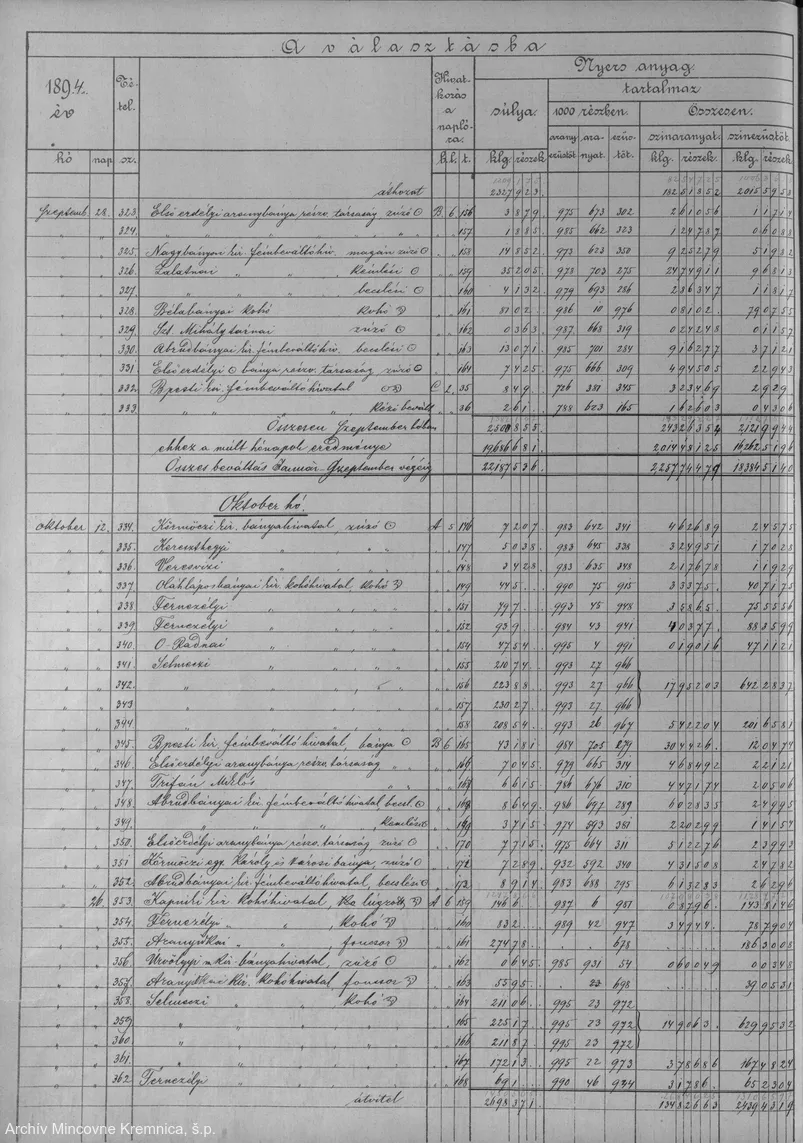 A választásba
1894. év
Tétel sz.
Hivatkozás a naplóra.
Nyers anyag
súlya.
tartalmaz
1000 részben.
Összesen.
arany ezüstöt
aranyat.
ezüstöt.
színaranyat.
színezüstöt.
hó nap kl. t. klg. részek klg. részek klg. részek
áthozat 2327 923 1825 1352 2015 5953
Szeptemb. 28. 323. Első erdélyi aranybánya részv. társaság zúzó B. 6 156 3879 975 673 302 261056 11714
324. 157 1885 985 662 323 124787 06088
325. Nagybányai kir. fémbeváltóhiv. magán zúzó 158 14852 973 623 350 925279 51982
326. Zalatnai kémlési 159 35205 978 703 275 2474911 96813
327. becslési 160 4132 979 693 286 286347 11817
328. Bélabányai kohó kohó 161 8102 986 10 976 08102 790755
329. Szt. Mihálytárnai zúzó 162 0363 987 668 319 024248 01157
330. Abrudbányai kir. fémbeváltóhiv. becslési 163 13071 985 701 284 916277 37121
331. Első erdélyi bánya részv. társaság zúzó 161 7425 975 666 309 494505 22943
332. Bpesti kir. fémbeváltóhivatal C 2. 35 849 726 381 345 323469 2929
333. kézi bevált. 36 261 788 623 165 162603 04306
Összesen Szeptember hóban 2500855 24326354 21219944
ehhez a múlt hónapok eredménye 19686681 201448125 162625196
Összes beváltás Január-Szeptember végéig 22187536 225774479 183845140
Oktober hó.
Oktober 12. 334. Körmöczi kir. bányahivatal, zúzó A 5 146 7207 983 642 341 462689 24575
335. Kereszthegyi 147 5038 983 645 338 324951 17028
336. Veresvizi 148 3428 983 635 348 217678 11929
337. Oláhláposbányai kir. kohóhivatal, kohó 149 445 990 75 915 33375 407175
338. Fernezélyi 151 797 993 45 948 35865 755556
339. Fernezélyi 152 939 984 43 941 40377 883599
340. O-Radnai 154 4754 995 4 991 019016 471121
341. Selmeczi 155 21074 993 27 966
342. 156 22388 993 27 966 1795203 6422837
343. 157 23027 993 27 966
344. 158 20854 993 26 967 542204 2016581
345. Bpesti kir. fémbeváltóhivatal, bánya B 6 165 43181 984 705 279 304426 120474
346. Elsőerdélyi aranybánya részv. társaság 166 7045 979 665 314 468492 22121
347. Trifán Miklós 6615 986 676 310 447174 20506
348. Abrudbányai kir. fémbeváltóhivatal becsl. 168 8649 986 697 289 602835 24995
349. kémlési 3715 974 593 381 220299 14154
350. Elsőerdélyi aranybánya részv. társaság zúzó 170 7715 975 664 311 512276 23993
351. Körmöczi egy. Károly és városi bánya, zúzó 172 7289 932 592 340 431508 24782
352. Abrudbányai kir. fémbeváltóhivatal, becslési 173 8914 983 688 295 613283 26296
26. 353. Kapniki kir. kohóhivatal, A 6 159 1466 987 6 981 08796 1438146
354. Fernezélyi kohó 160 832 989 42 947 34944 787904
355. Aranyidkai foncsor 161 27478 678 1863008
356. Urvölgyi m. kir. bányahivatal, zúzó 162 0645 985 931 54 060049 00348
357. Aranyidkai kir. kohóhivatal foncsor 163 5595 698 390531
358. Selmeczi kohó 164 21106 995 23 972
359. 165 22517 995 23 972 149063 6299532
360. 166 21187 995 23 972
361. 167 17213 995 22 973 378686 1674824
362. Fernezélyi 168 691 990 46 944 31786 652304
átvitel 2698371 13482663 24394319
Archív Mincovne Kremnica, š.p.